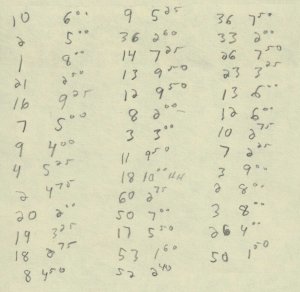 10 6⁰⁰
2 5⁰⁰
1 8⁰⁰
21 2⁵⁰
16 9²⁵
7 5⁰⁰
9 4⁰⁰
4 5²⁵
2 4⁷⁵
20 2⁰⁰
19 3²⁵
18 2⁷⁵
8 4⁵⁰
9 5²⁵
36 2⁶⁰
14 7²⁵
13 9⁵⁰
12 9⁵⁰
8 2⁰⁰
3 3⁰⁰
11 9⁵⁰
18 10⁰⁰
60 2⁷⁵
50 7⁰⁰
17 5⁵⁰
53 1⁶⁰
52 2⁴⁰
36 7⁵⁰
33 2⁰⁰
26 7⁵⁰
23 3²⁵
13 6⁰⁰
12 6⁰⁰
10 2⁷⁵
7 2²⁵
3 9⁰⁰
2 8⁰⁰
3 8⁰⁰
26 4⁰⁰
50 1⁵⁰